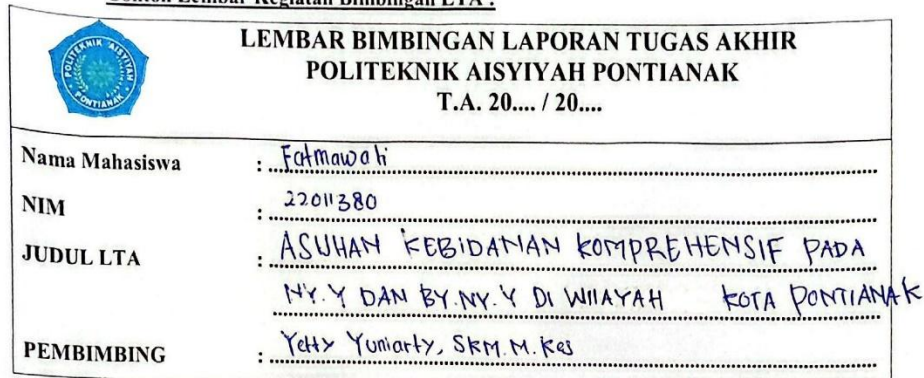 Contoh Lembar Kegiatan Bimbingan LTA :
POLITEKNIK 'AISYIYAH
PONTIANAK
LEMBAR BIMBINGAN LAPORAN TUGAS AKHIR
POLITEKNIK AISYIYAH PONTIANAK
T.A. 20.... / 20....
Nama Mahasiswa : Fatmawati
NIM : 22011380
JUDUL LTA : ASUHAN KEBIDANAN KOMPREHENSIF PADA
NY.Y DAN BY.NY.Y DI WIIAYAH KOTA PONTIANAK
PEMBIMBING : Yetty Yuniarty, SKM.M.Kes